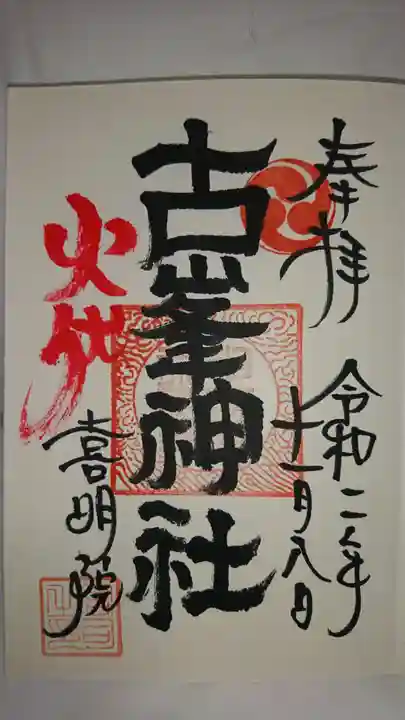 奉拝
令和二年
十一月八日
古峯神社
火伐
喜明院